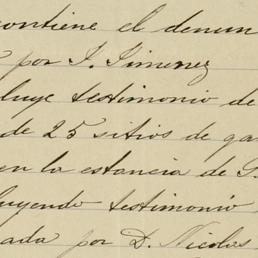 contiene el denun
por J. Jimenez
luye testimonio de
de 25 sitios de ga
en la estancia de S.
luyendo testimonio
ada por D. Nicolas